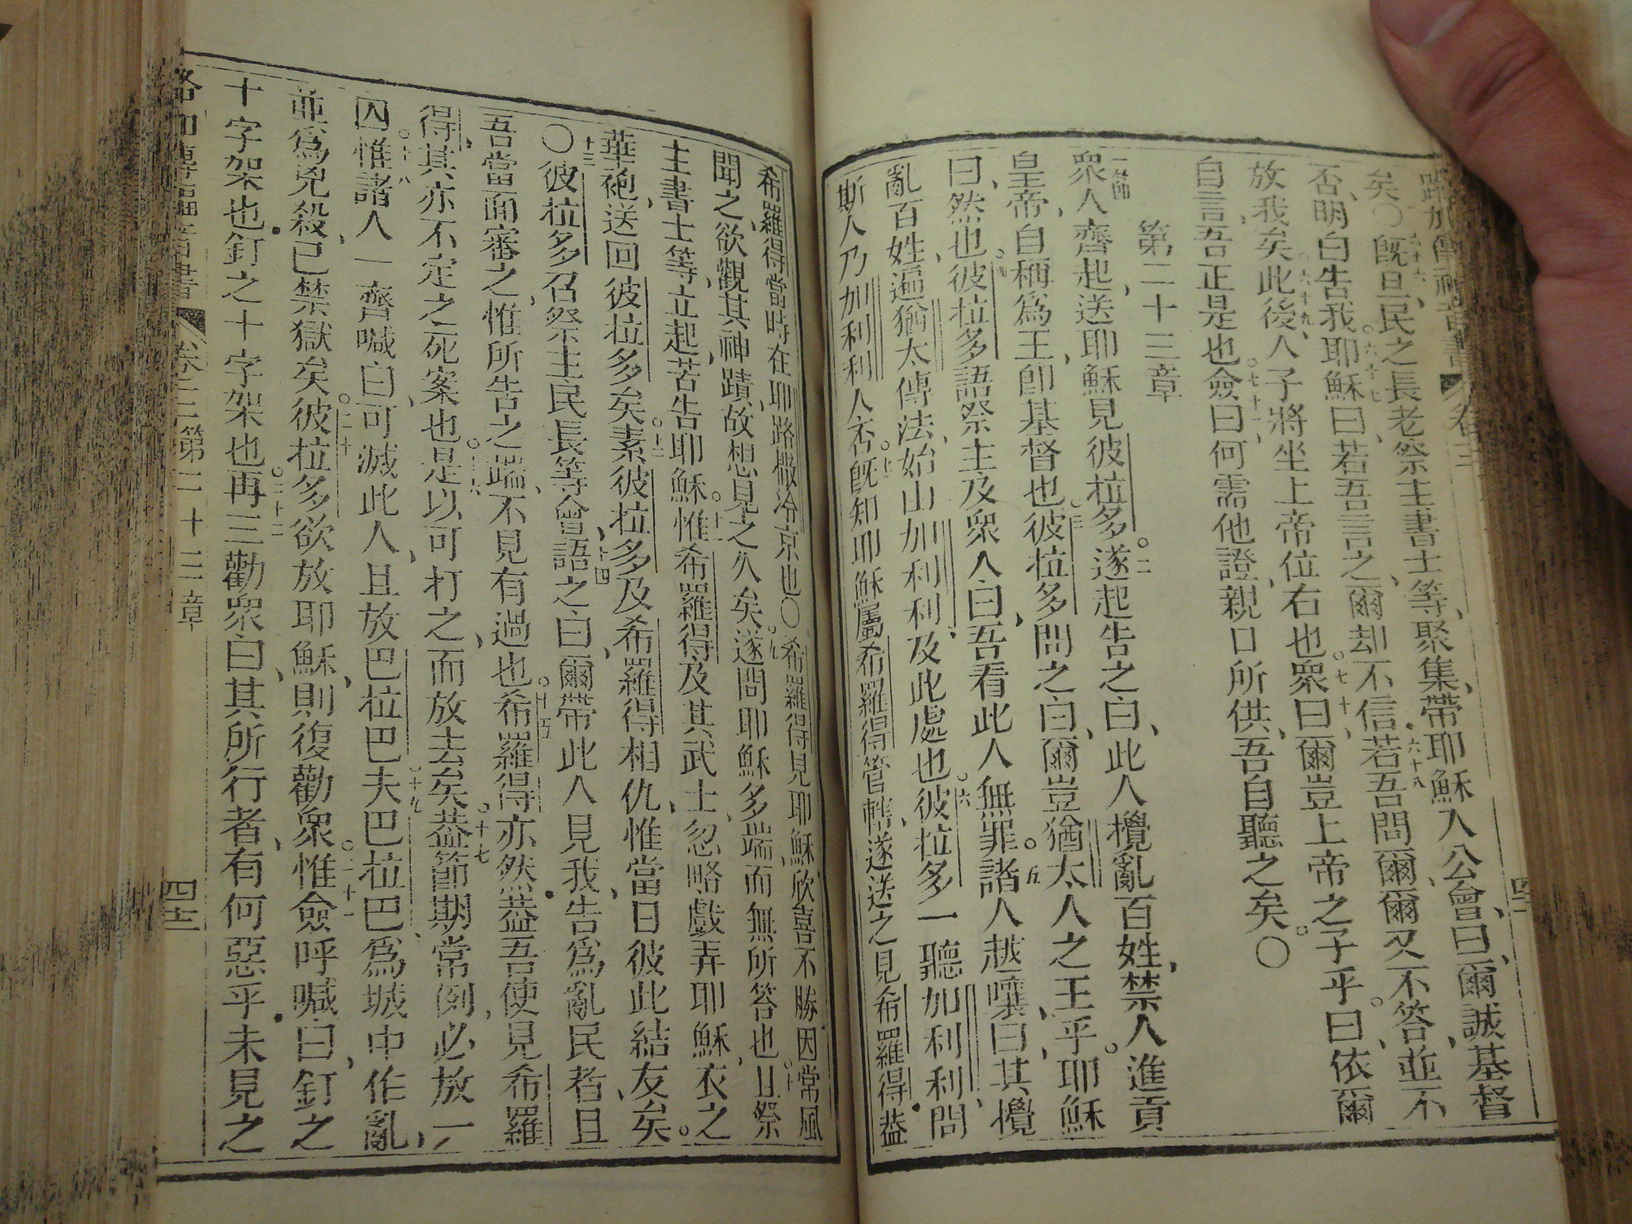 路加傳福音書 卷三 四十
矣〇既旦民之長老祭主書士等聚集帶耶穌入公會曰爾誠基督
否明白告我耶穌曰若吾言之爾却不信若吾問爾爾又不答並不
放我矣此後人子將坐上帝位右也眾曰爾豈上帝之子乎曰依爾
自言吾正是也僉曰何需他證親口所供吾自聽之矣〇
第二十三章
眾人齊起送耶穌見彼拉多遂起告之曰此人攪亂百姓禁人進貢
皇帝自稱為王即基督也彼拉多問之曰爾豈猶太人之王乎耶穌
曰然也彼拉多語祭主及眾人曰吾看此人無罪諸人越嚷曰其攪
亂百姓遍猶太傳法始山加利利及此處也彼拉多一聽加利利問
斯人乃加利利人否既知耶穌屬希羅得管轄遂送之見希羅得葢
希羅得當時在耶路撒冷京也〇希羅得見耶穌欣喜不勝因常風
聞之欲觀其神蹟故想見之久矣遂問耶穌多端而無所答也且祭
主書士等立起苦告耶穌惟希羅得及其武士忽略戲弄耶穌衣之
華袍送回彼拉多矣素彼拉多及希羅得相仇惟當日彼此結友矣
〇彼拉多召祭主民長等會語之曰爾帶此人見我告為亂民者且
吾當面審之惟所告之端不見有過也希羅得亦然葢吾使見希羅
得其亦不定之死案也是以可打之而放去矣葢節期常例必放一
囚惟諸人一齊喊曰可滅此人且放巴拉巴夫巴拉巴為城中作亂
並為兇殺已禁獄矣彼拉多欲放耶穌則復勸眾惟僉呼喊曰釘之
十字架也釘之十字架也再三勸眾曰其所行者有何惡乎未見之
路加傳福音書 卷三 第二十三章